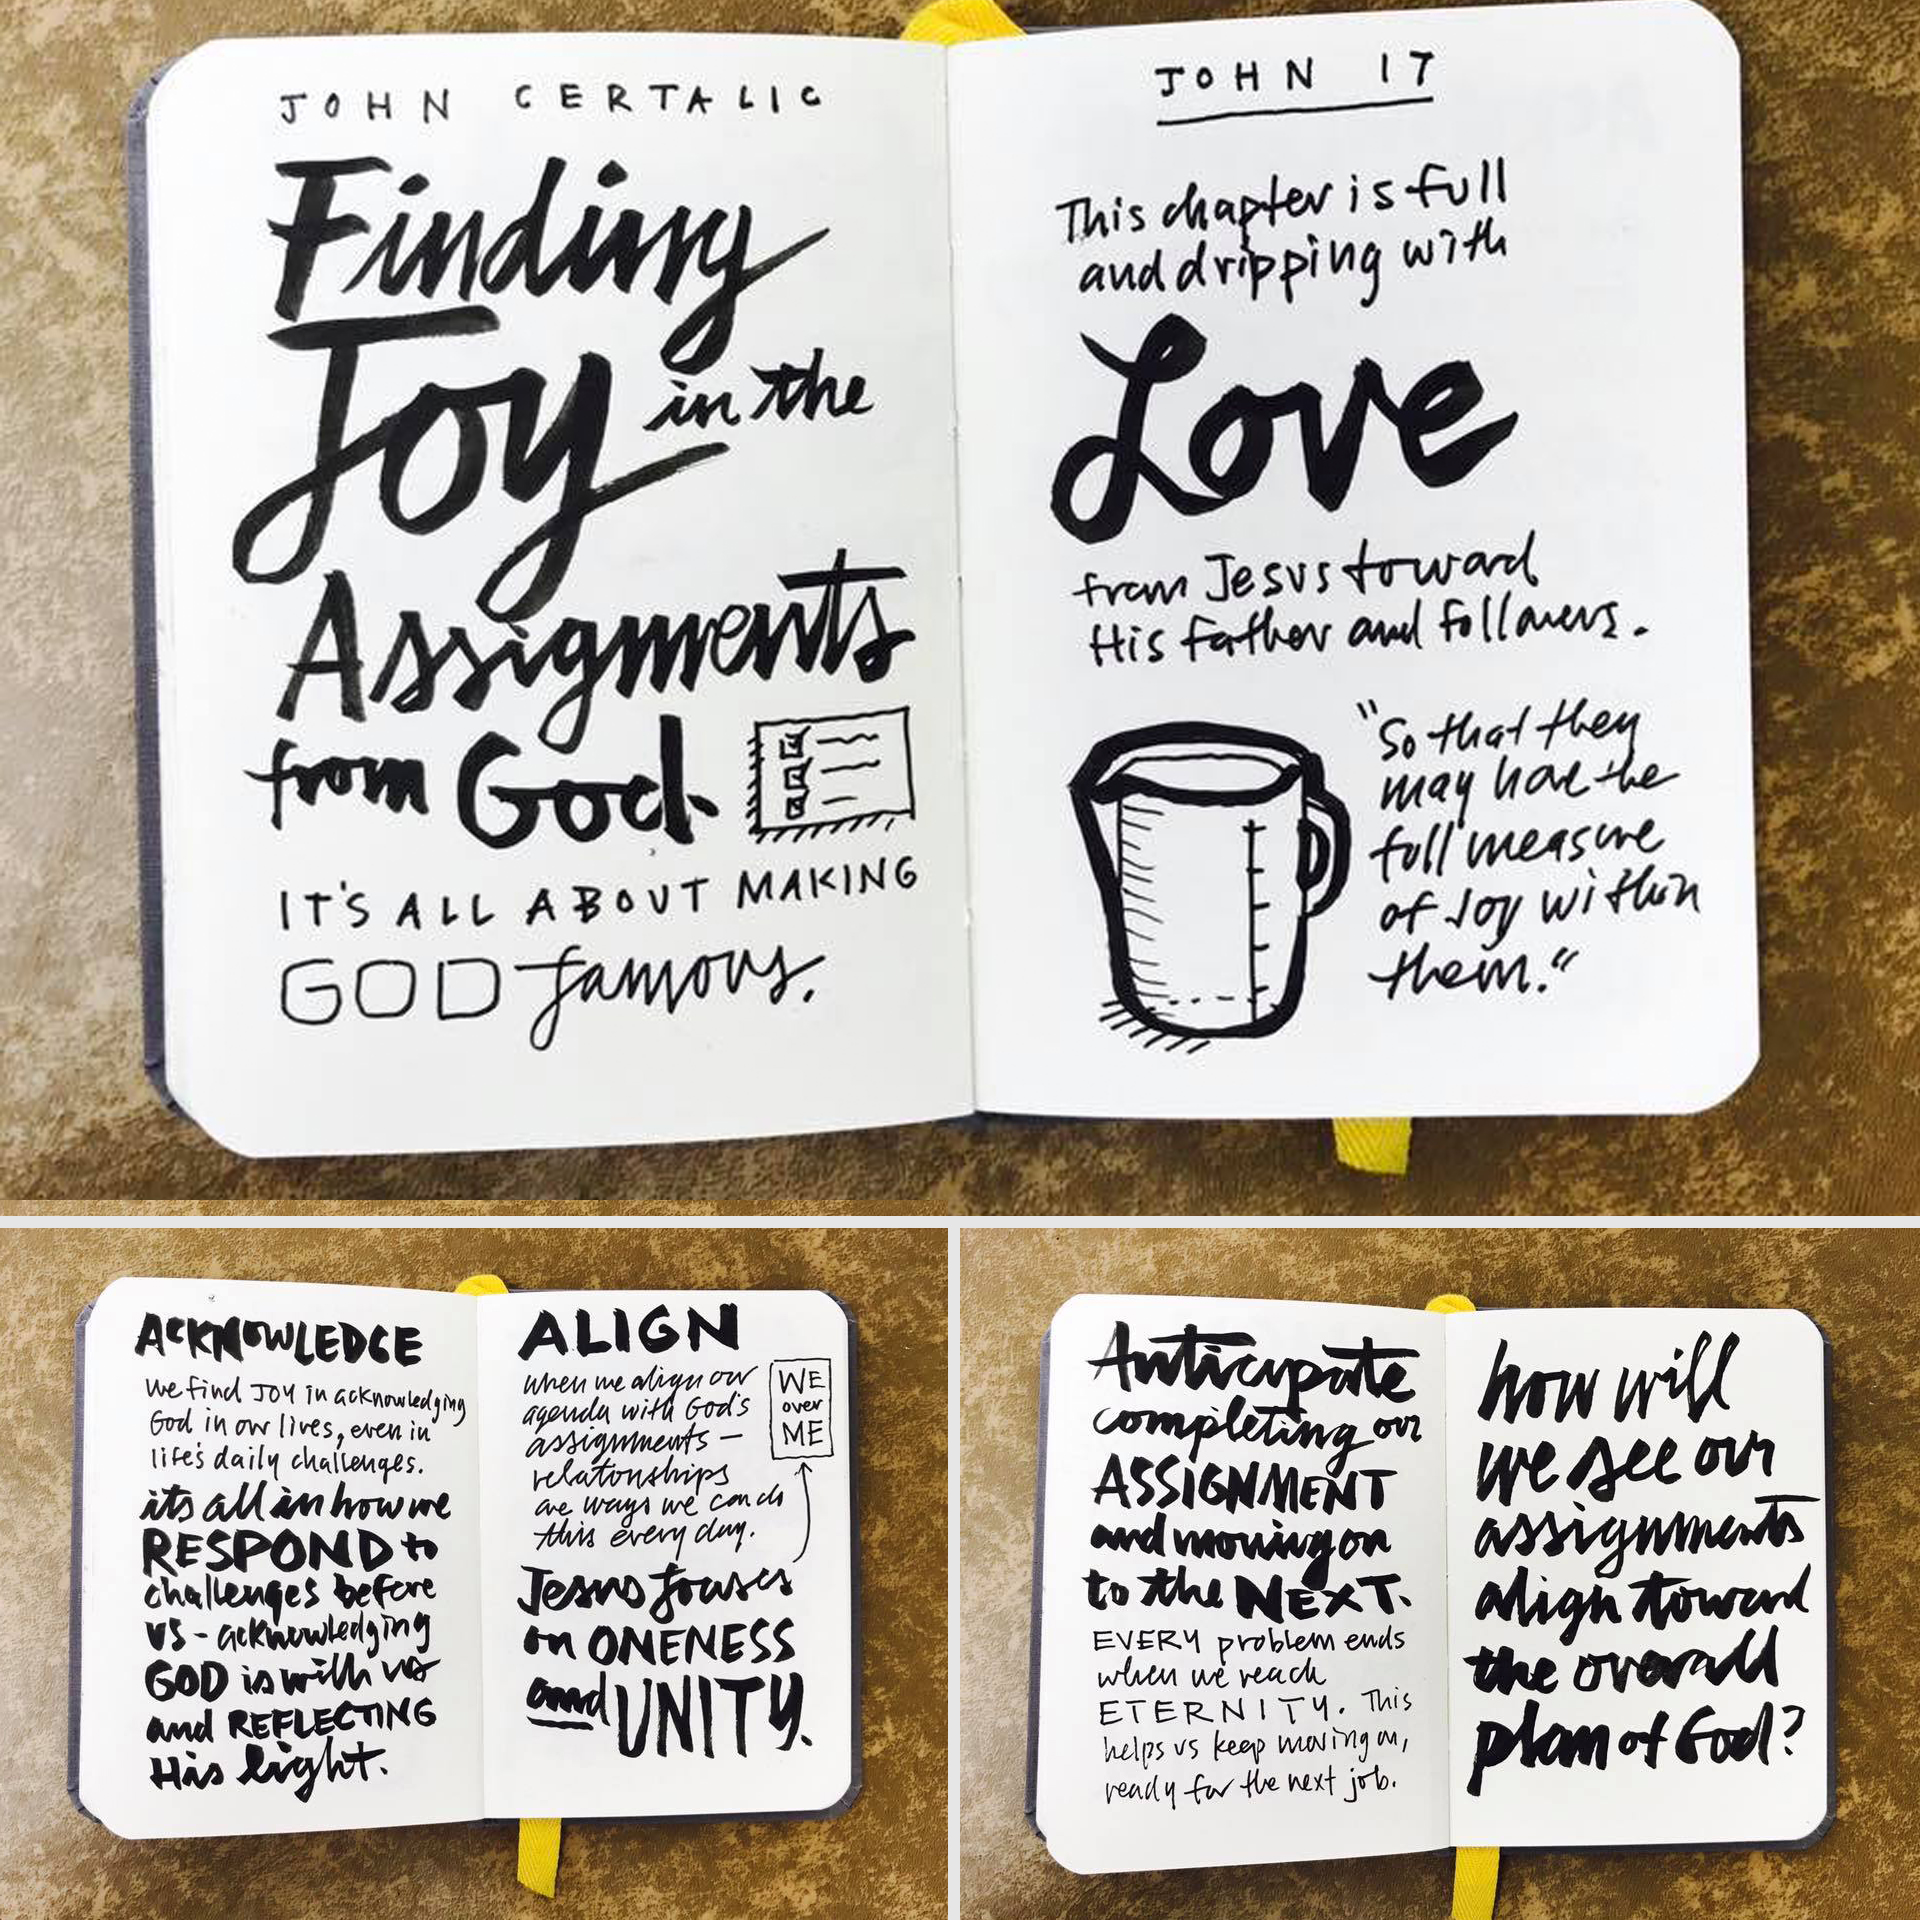 JOHN CERTALIC
Finding
Joy in the
Assignments
from God.
IT'S ALL ABOUT MAKING
GOD famous.
JOHN 17
This chapter is full
and dripping with
Love
from Jesus toward
His father and followers.
"So that they
may have the
full measure
of Joy within
them."
ACKNOWLEDGE
We find JOY in acknowledging
God in our lives, even in
life's daily challenges.
its all in how we
RESPOND to
challenges before
us - acknowledging
GOD is with us
and REFLECTING
His light.
ALIGN
when we align our
agenda with God's
assignments —
relationships
are ways we can do
this every day.
WE
over
ME
Jesus focuses
on ONENESS
and UNITY.
Anticipate
completing our
ASSIGNMENT
and moving on
to the NEXT.
EVERY problem ends
when we reach
ETERNITY. This
helps us keep moving on,
ready for the next job.
how will
we see our
assignments
align toward
the overall
plan of God?